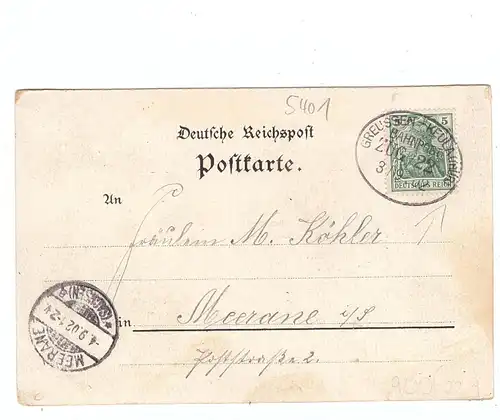 5401
Deutsche Reichspost
Postkarte.
5
GREUSSEN-KEULA
BAHNPOST
ZUG 22
DEUTSCHES REICH
An
Fräulein M. Köhler
in Meerane i/S
Poststraße 2.
MEERANE
(SACHSEN)
4.9.02.